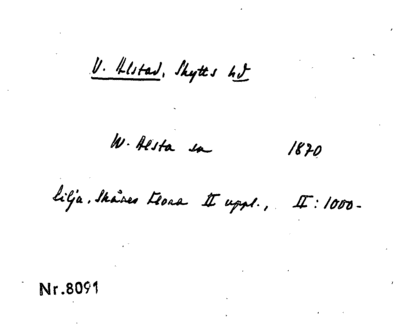 V. Alstad, Skytts hd
W. Alsta sn 1870
Lilja, Skånes Flora II uppl., II: 1000-
Nr.8091